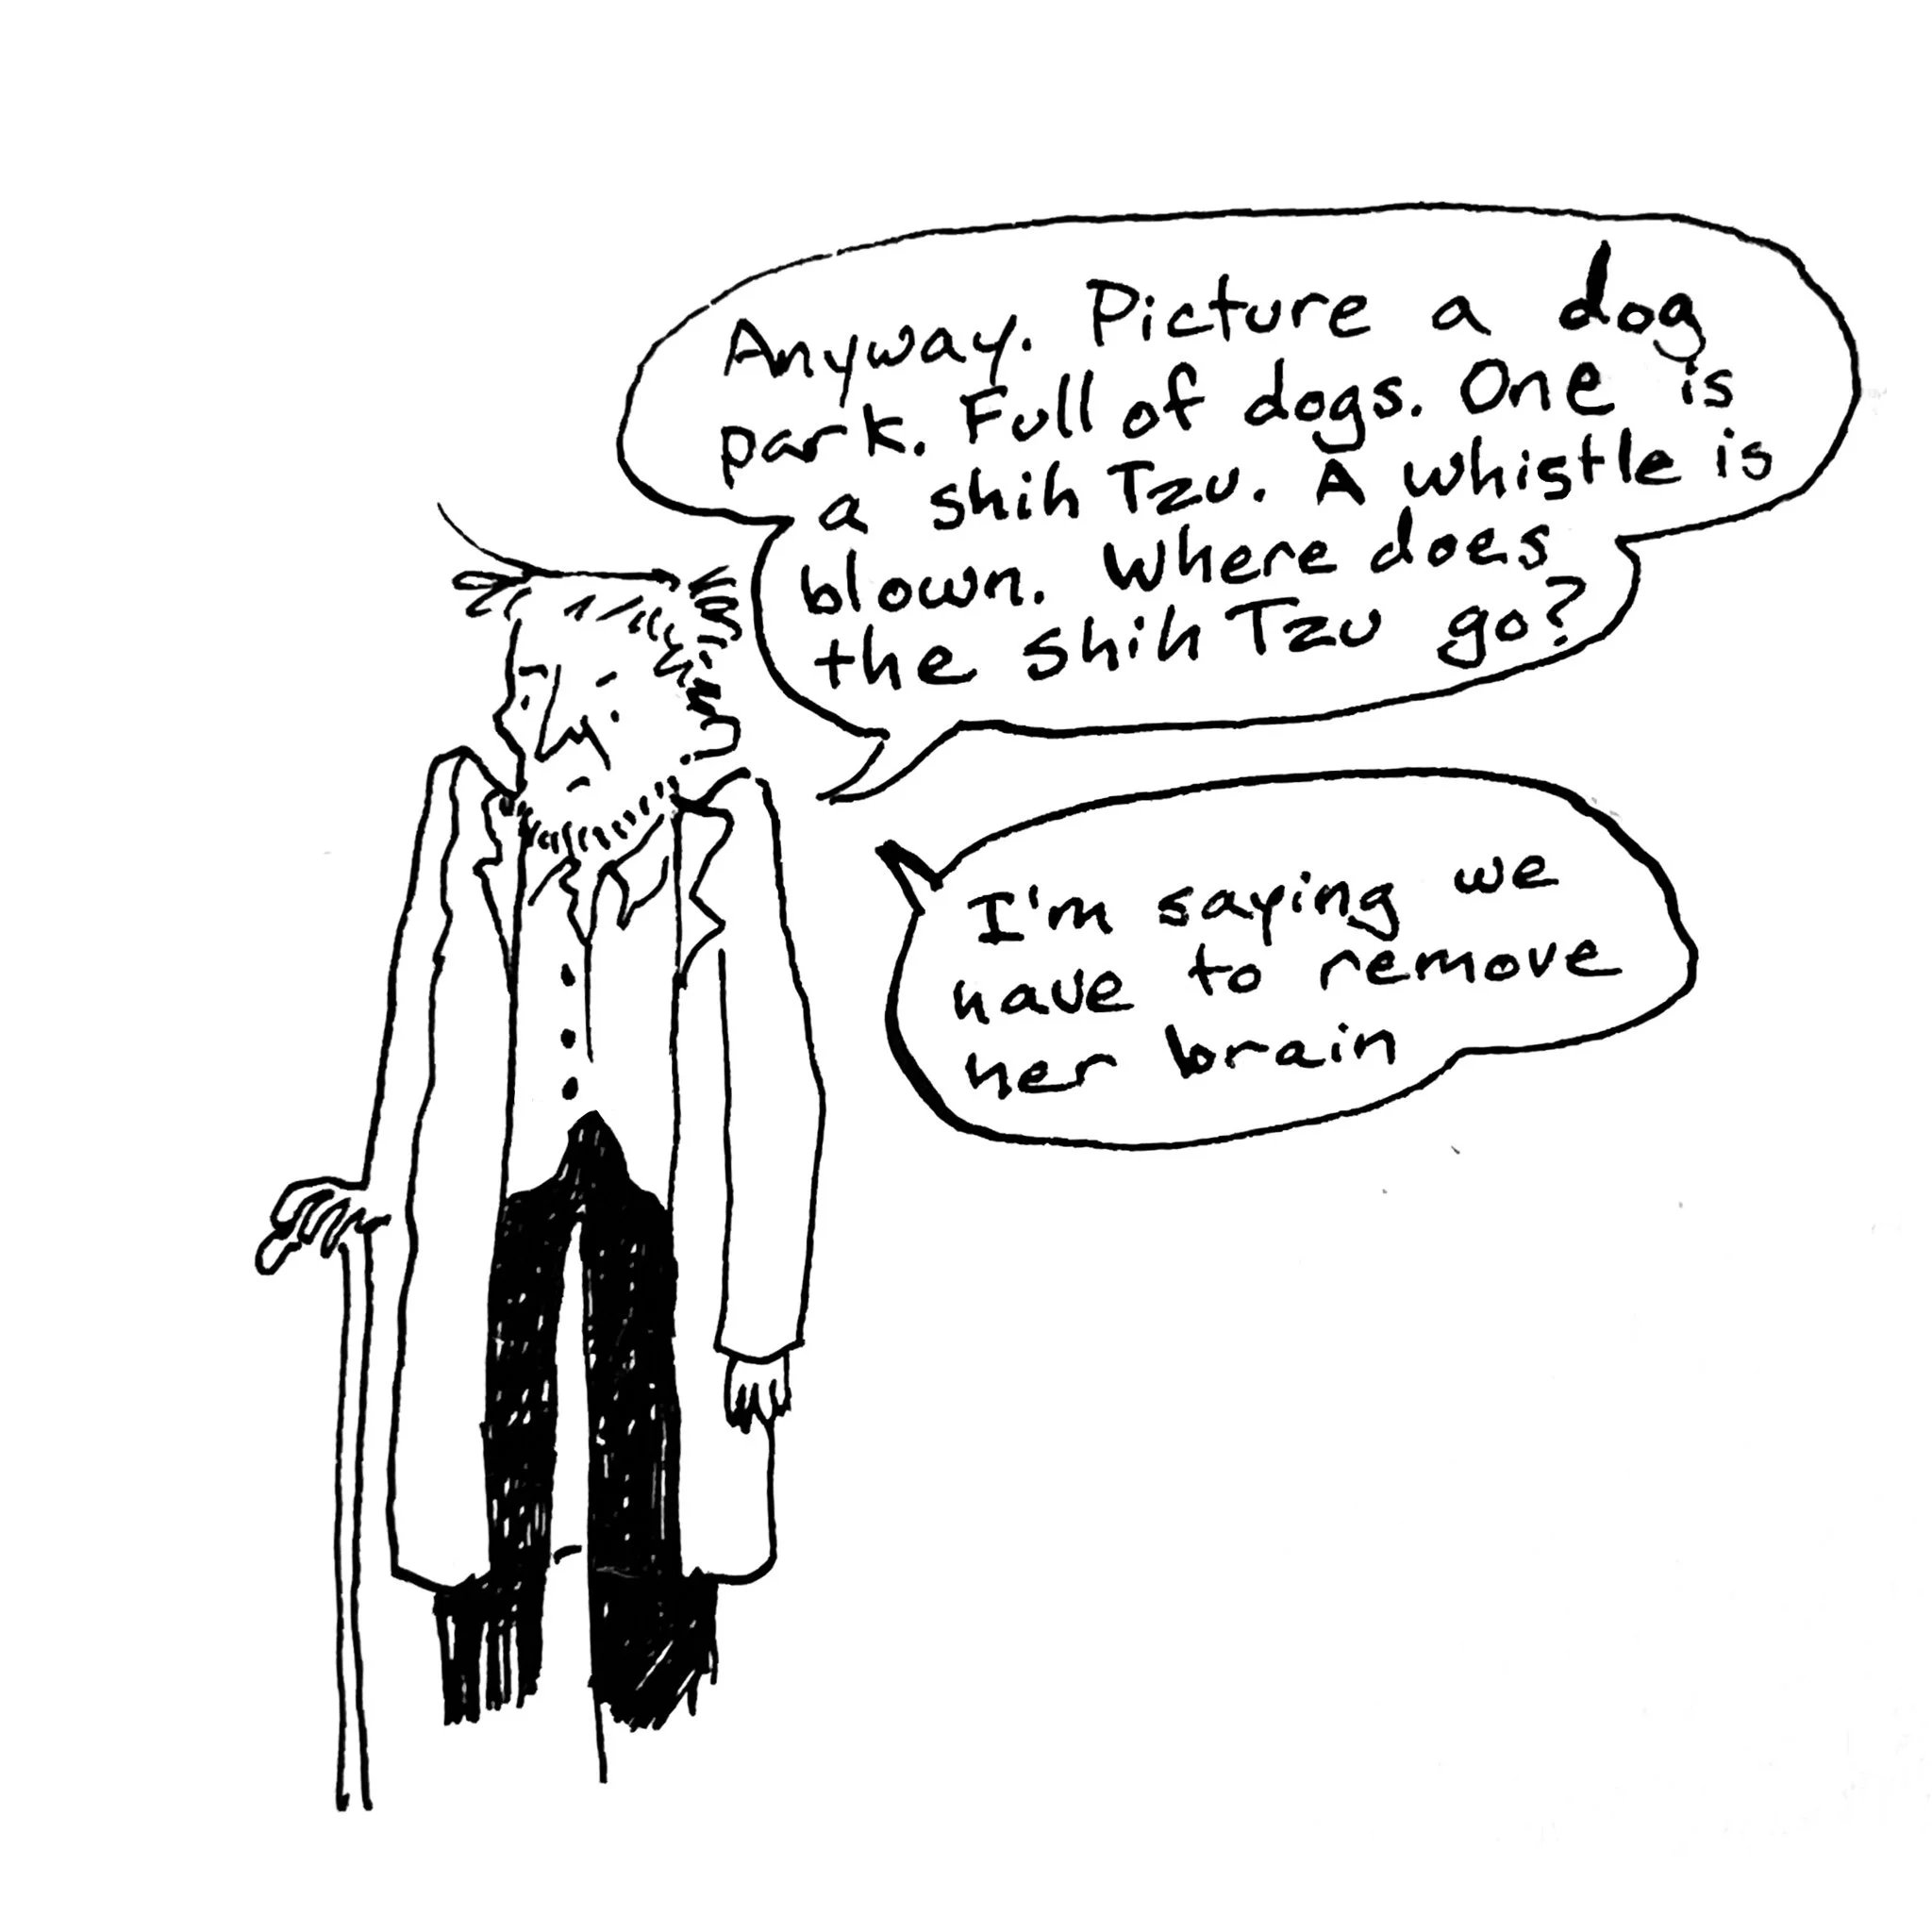 Anyway. Picture a dog
park. Full of dogs. One is
a shih Tzu. A whistle is
blown. Where does
the shih Tzu go?
I'm saying we
have to remove
her brain